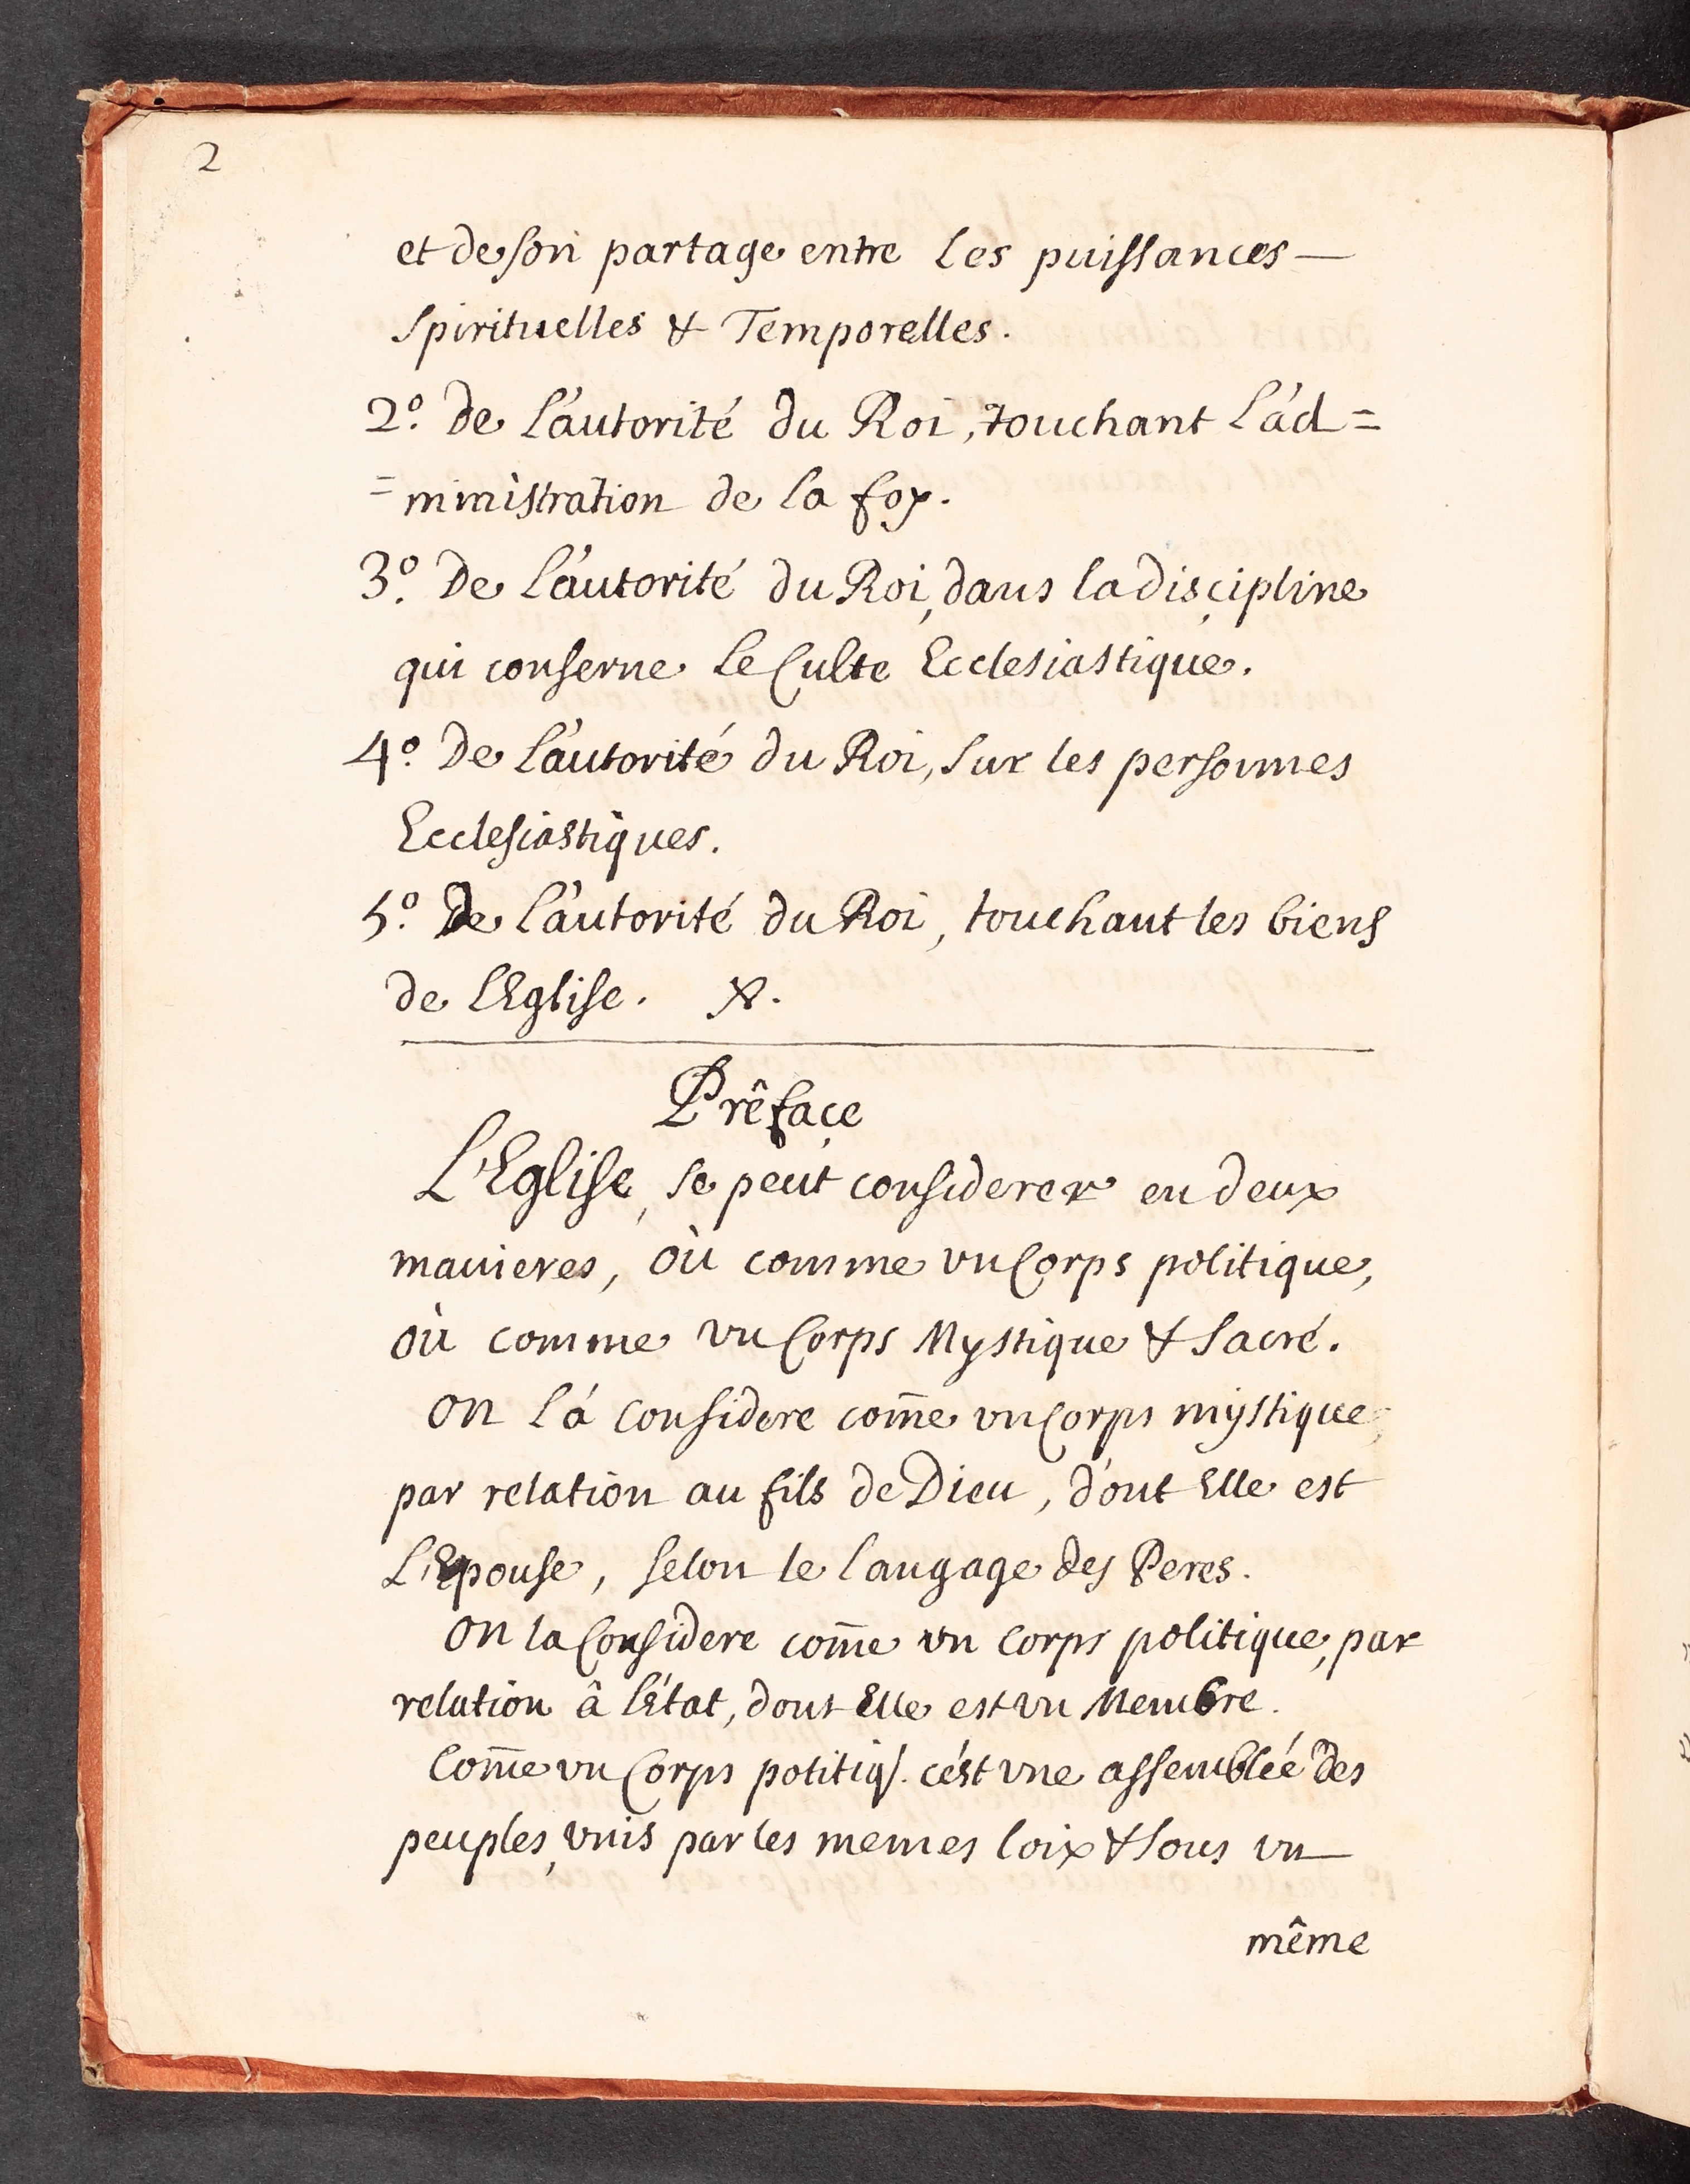 2
et de son partage entre les puissances —
Spirituelles & Temporelles.
2.º de l'autorité du Roi, touchant l'ad=
=ministration de la foy.
3.º De l'autorité du Roi, dans la discipline
qui conserne le Culte Ecclesiastique.
4.º De l'autorité du Roi, sur les personnes
Ecclesiastiques.
5.º De l'autorité du Roi, touchant les biens
de l'Eglise.
Prêface
L'Eglise, se peut considerer en deux
manieres, où comme vn Corps politique,
où comme vn Corps Mystique & Sacré.
On l'á considere com̄e vn Corps mystique
par relation au fils de Dieu, d'ont Elle est
L'Epouse, selon le langage des Peres.
On la Considere com̄e vn corps politique, par
relation â l'Etat, dont Elle est vn Membre.
Com̄e vn Corps politiq. c'ést vne assemblée des
peuples, vnis par les memes loix & sous vn
même